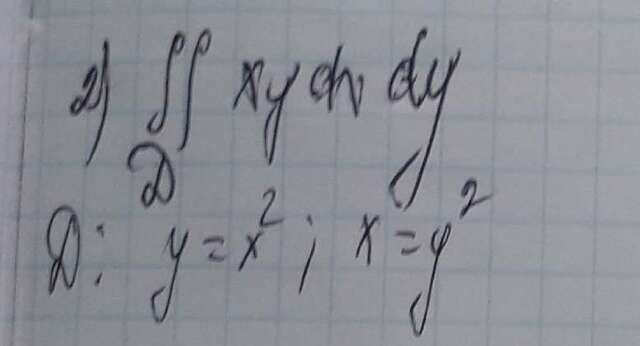 2) ∬ xy dx dy
D
D: y = x²; x = y²